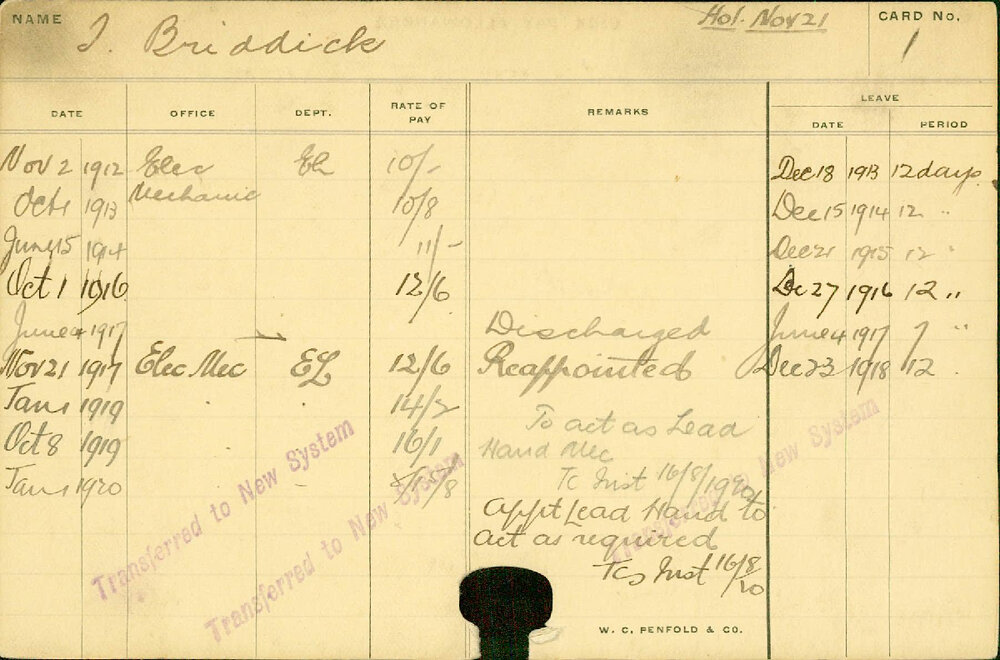 NAME J. Briddick Hol. Nov 21 CARD No. 1
LEAVE
DATE OFFICE DEPT. RATE OF PAY REMARKS DATE PERIOD
Nov 2 1912 Elec EL 10/- Dec 18 1913 12 days
Mechanic
Oct 1 1913 10/8 Dec 15 1914 12 "
June 15 1914 11/- Dec 21 1915 12 "
Oct 1 1916 12/6 Dec 27 1916 12 "
June 4 1917 Discharged June 4 1917 7 "
Nov 21 1917 Elec Mec EL 12/6 Reappointed Dec 23 1918 12
Jan 1 1919 14/2
To act as Lead
Oct 8 1919 16/1 Hand Mec
Jan 1 1920 /8 Tc Inst 16/8/1920
Appt Lead Hand to
act as required
Tcs Inst 16/8/20
Transferred to New System
Transferred to New System
Transferred to New System
W. C. PENFOLD & CO.